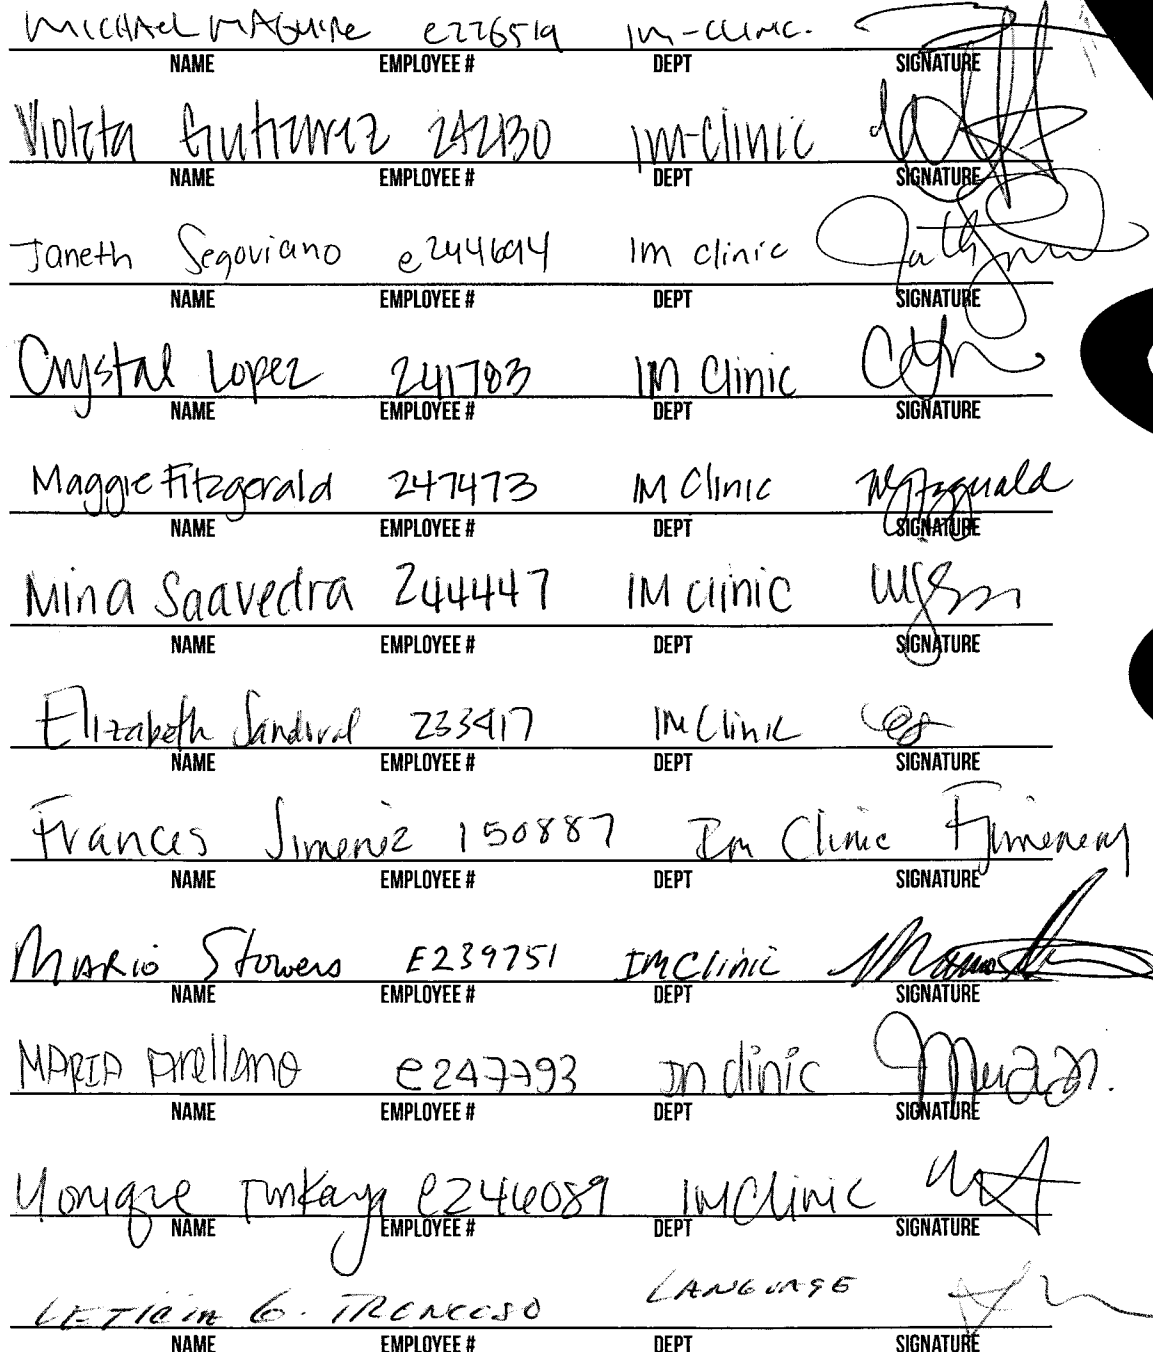 MICHAEL MAGUIRE e226519 IM-CLINIC.
NAME EMPLOYEE # DEPT SIGNATURE
Violeta Gutierrez 242130 IM-Clinic
NAME EMPLOYEE # DEPT SIGNATURE
Janeth Segoviano e244694 IM clinic
NAME EMPLOYEE # DEPT SIGNATURE
Crystal Lopez 241783 IM Clinic
NAME EMPLOYEE # DEPT SIGNATURE
Maggie Fitzgerald 247473 IM Clinic MFitzgerald
NAME EMPLOYEE # DEPT SIGNATURE
Mina Saavedra 244447 IM clinic
NAME EMPLOYEE # DEPT SIGNATURE
Elizabeth Sandoval 233417 IM Clinic
NAME EMPLOYEE # DEPT SIGNATURE
Frances Jimenez 150887 Im Clinic FJimenez
NAME EMPLOYEE # DEPT SIGNATURE
MARIO Stowers E239751 IM Clinic
NAME EMPLOYEE # DEPT SIGNATURE
MARIA Arellano e247793 Im clinic
NAME EMPLOYEE # DEPT SIGNATURE
e246089 IM Clinic
NAME EMPLOYEE # DEPT SIGNATURE
LETICIA G. LANGUAGE
NAME EMPLOYEE # DEPT SIGNATURE